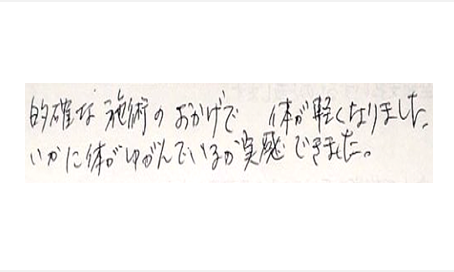 的確な施術のおかげで 体が軽くなりました。
いかに体がゆがんでいるか実感できました。